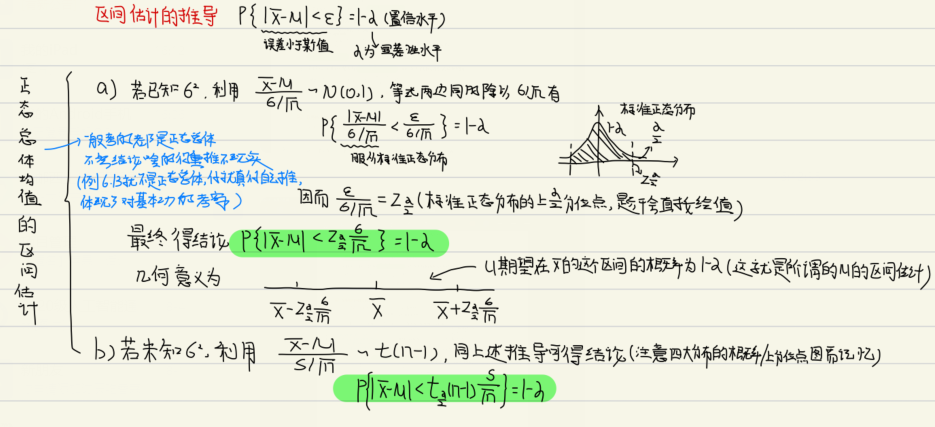 区间估计的推导 P{|X̄-μ|<ε}=1-α (置信水平)
误差小于某值 α为显著性水平
正态总体均值的区间估计
a) 若已知σ², 利用 (X̄-μ)/(σ/√n) ~ N(0,1), 等式两边同时除以 σ/√n 有
P{|X̄-μ|/(σ/√n) < ε/(σ/√n)} = 1-α
服从标准正态分布
标准正态分布
1-α
α/2
Z_{α/2}
一般考的都是正态总体
(例6.13就不是正态总体,
体现了对基本功的考察)
因而 ε/(σ/√n) = Z_{α/2} (标准正态分布的上α/2分位点, 题干会直接给值)
最终得结论 P{|X̄-μ|<Z_{α/2} σ/√n} = 1-α
几何意义为
μ期望在X̄的这个区间的概率为1-α (这就是所谓的μ的区间估计)
X̄-Z_{α/2} σ/√n X̄ X̄+Z_{α/2} σ/√n
b) 若未知σ², 利用 (X̄-μ)/(S/√n) ~ t(n-1), 同上述推导可得结论 (注意四大分布的概率/上分位点图而记忆)
P{|X̄-μ|<t_{α/2}(n-1) S/√n} = 1-α